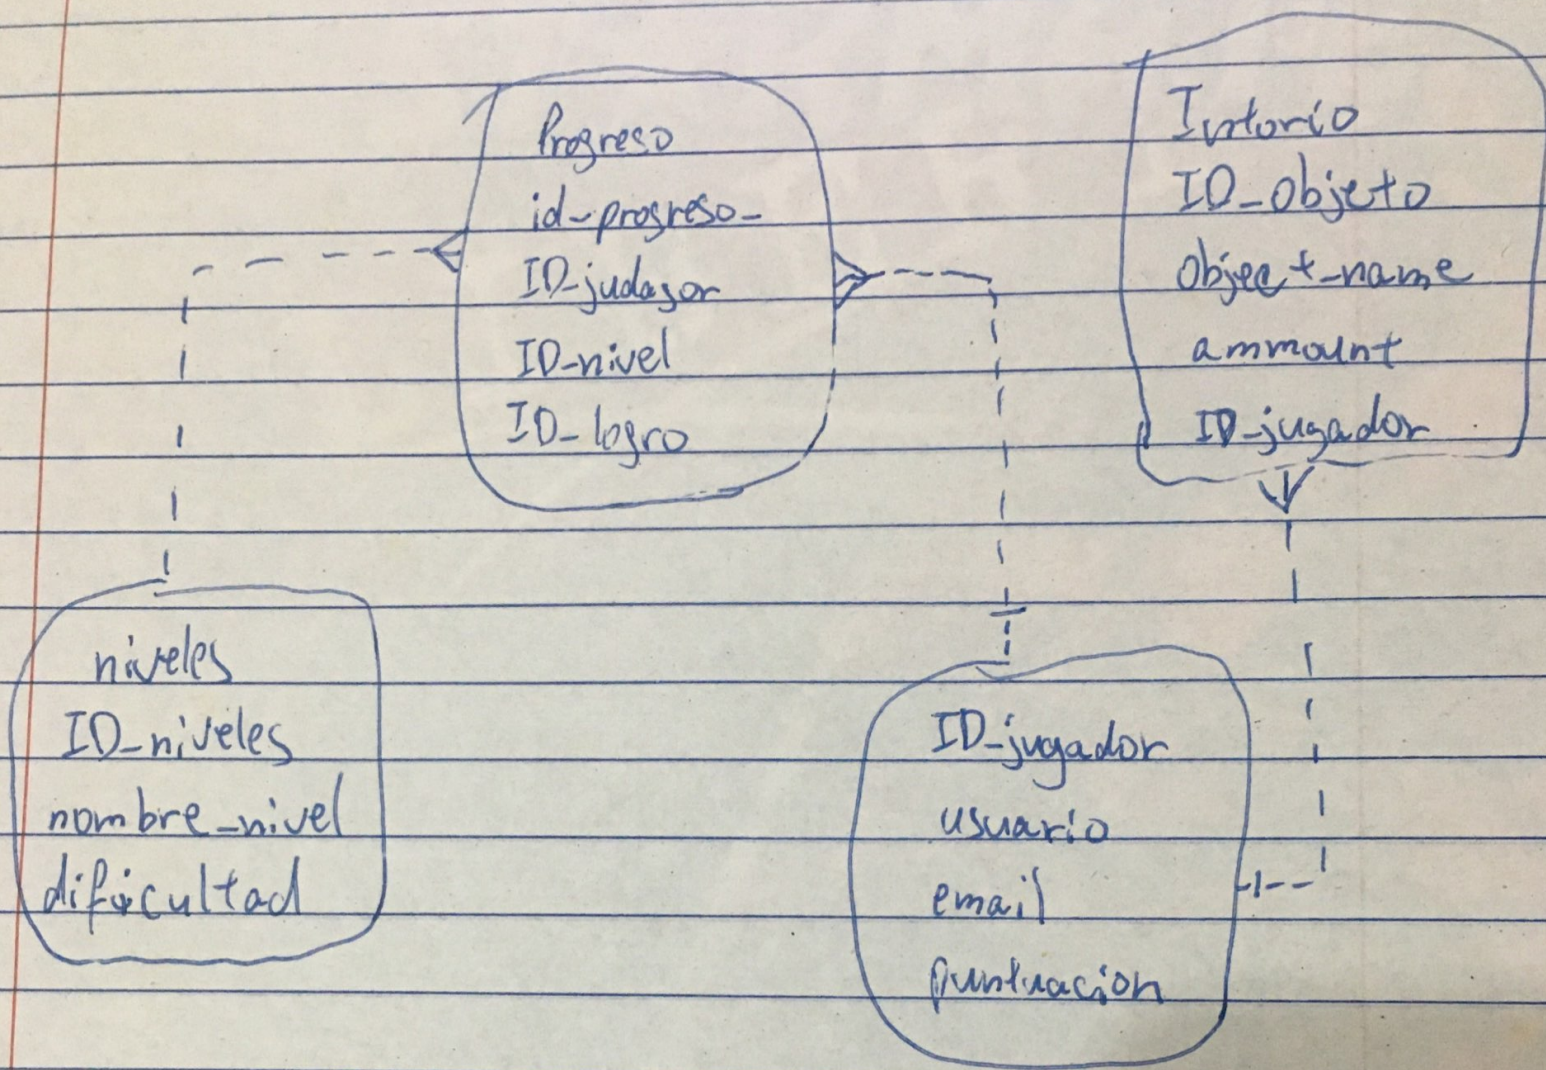 Progreso
id_progreso_
ID_judagor
ID_nivel
ID_logro
Intorio
ID_objeto
object_name
ammount
ID_jugador
niveles
ID_niveles
nombre_nivel
dificultad
ID_jugador
usuario
email
puntuacion